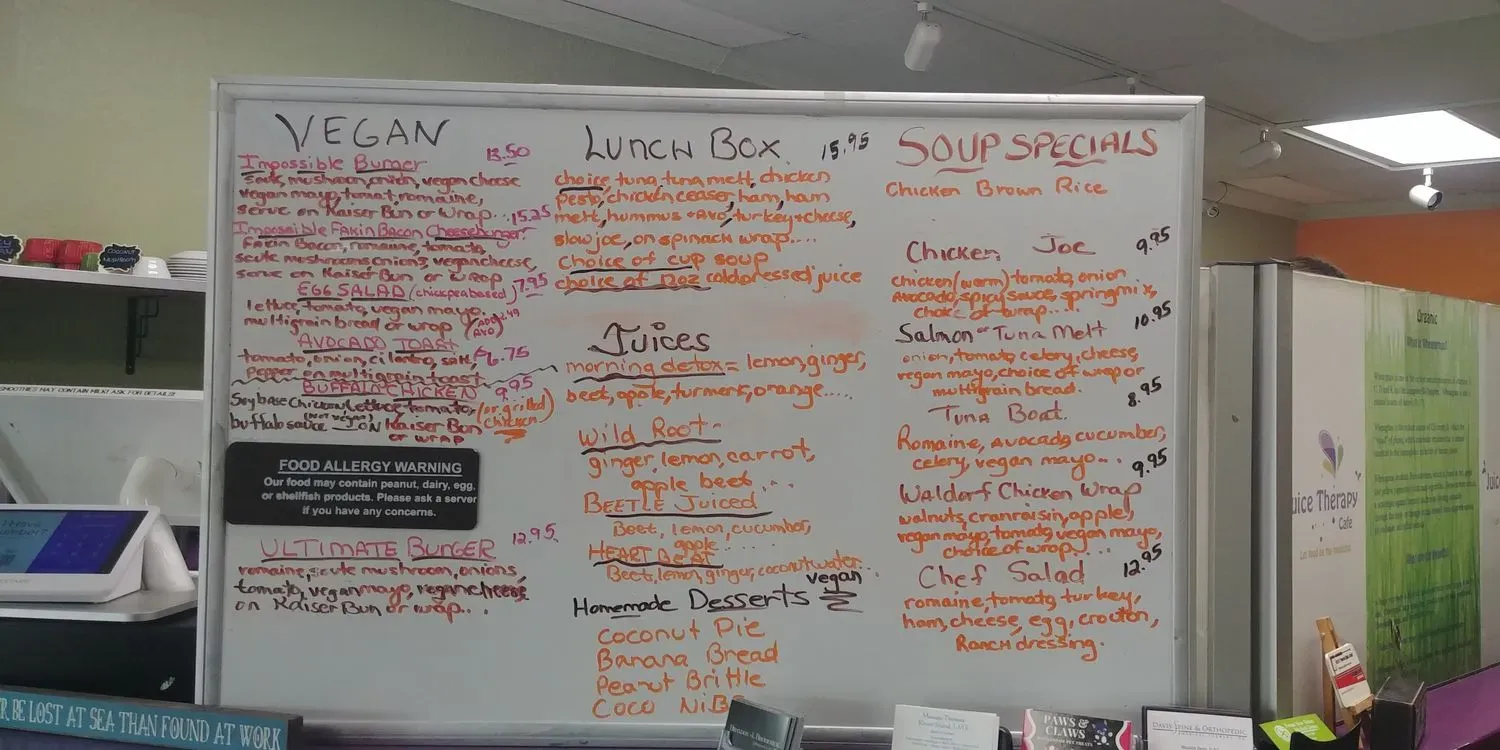 VEGAN
Impossible Burger 13.50
saute, mushroom, onion, vegan cheese
vegan mayo, tomat, romaine,
serve on Kaiser Bun or Wrap... 15.25
Impossible Fakin Bacon Cheeseburger
Fakin Bacon, romaine, tomato,
saute mushrooms onions, vegan cheese,
serve on Kaiser Bun or Wrap
EGG SALAD (chickpea based) 7.95
lettuce, tomato, vegan mayo.
multigrain bread or wrap (Add 2.49 Avo)
AVOCADO TOAST
tomato, onion, cilantro, salt, 6.75
Pepper on multigrain toast
BUFFALO CHICKEN 9.95
Soy base Chicken, lettuce, tomato, (or grilled
buffalo sauce (not vegan) ON Kaiser Bun chicken)
or wrap
FOOD ALLERGY WARNING
Our food may contain peanut, dairy, egg,
or shellfish products. Please ask a server
if you have any concerns.
ULTIMATE BURGER 12.95
romaine, saute mushroom, onions,
tomato, vegan mayo, vegan cheese
on Kaiser Bun or wrap...
LUNCH BOX 15.95
choice, tuna, tuna melt, chicken
pesto, chicken ceaser, ham, ham
melt, hummus + AVO, turkey + cheese,
slow joe, on spinach wrap....
choice of cup soup
coldpressed juice
Juices
morning detox = lemon, ginger,
beet, apple, turmers, orange....
Wild Root-
ginger, lemon, carrot,
apple beet....
BEETLE Juiced
Beet, lemon, cucumber,
apple.....
HEART BEAT
Beet, lemon, ginger, coconut water...
Homemade Desserts vegan
Coconut Pie
Banana Bread
Peanut Brittle
Coco NiBS
SOUP SPECIALS
Chicken Brown Rice
Chicken Joe 9.95
chicken (warm) tomato, onion
Avocado, spicy sauce, spring mix,
choice of wrap.... 
Salmon or Tuna Melt 10.95
onion, tomato, celery, cheese,
vegan mayo, choice of wrap or
multigrain bread.
Tuna Boat. 8.95
Romaine, Avocado, cucumber,
celery, vegan mayo...
Waldorf Chicken Wrap 9.95
walnuts, cranraisin, apple,
vegan mayo, tomato, vegan mayo,
choice of wrap....
Chef Salad 12.95
romaine, tomato, turkey,
ham, cheese, egg, crouton,
Ranch dressing.
COCONUT
MUSHROOM
SMOOTHIES MAY CONTAIN MILK! ASK FOR DETAILS!
R BE LOST AT SEA THAN FOUND AT WORK
PAWS &
CLAWS
DAVIS SPINE & ORTHOPEDIC
Organic
uice Therapy
Cafe
Let food be thy medicine